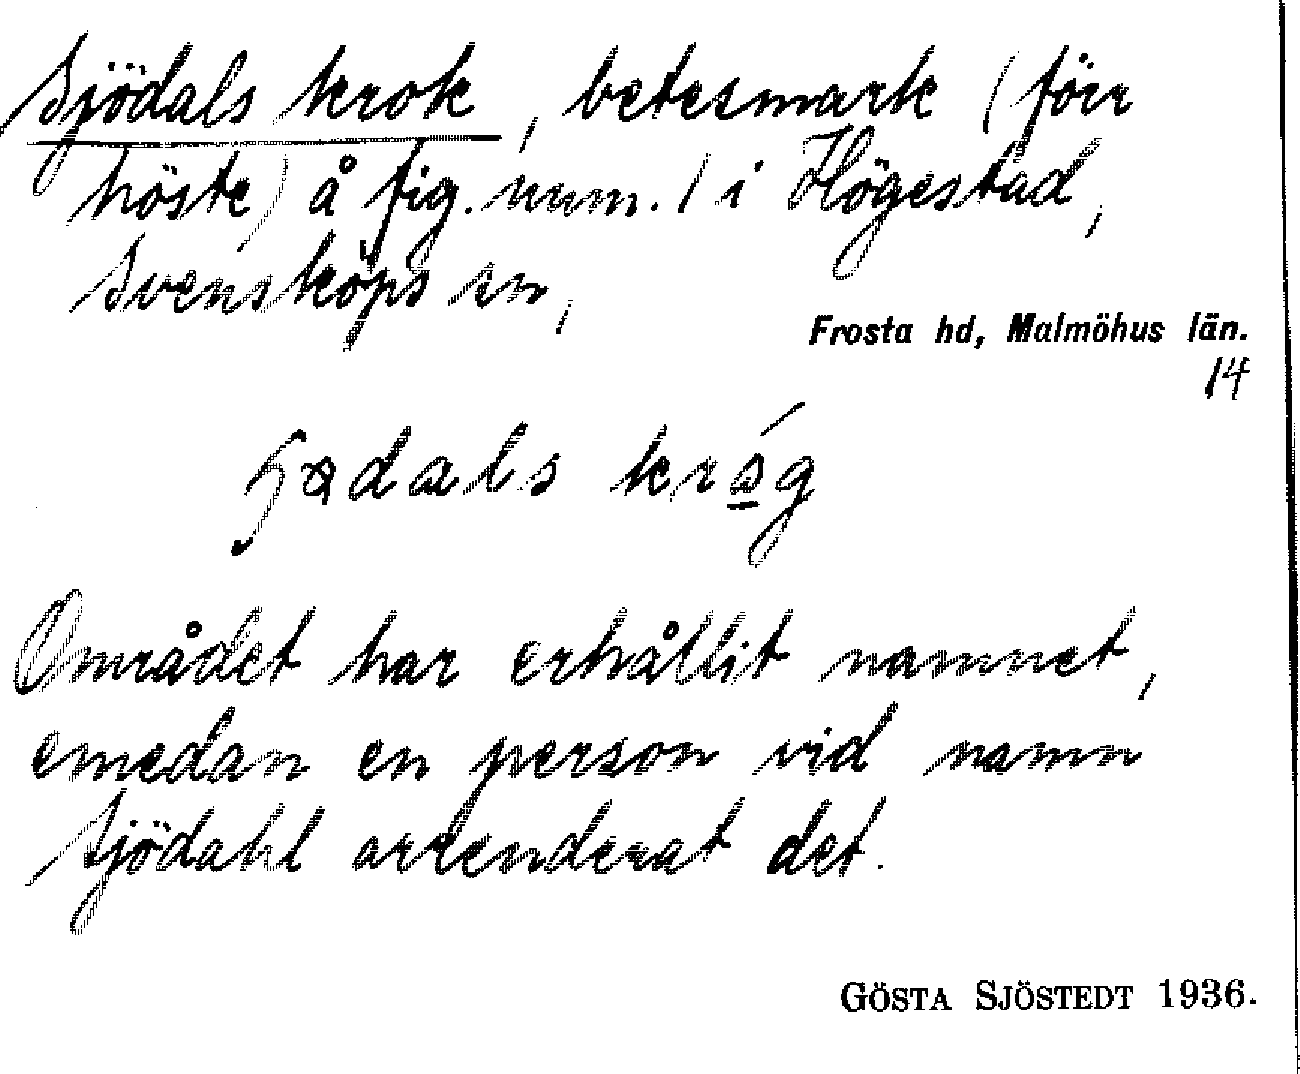 Sjödals krok, betesmark (förr
höste) å fig. num. 1 i Högestad,
Svensköps sn,
Frosta hd, Malmöhus län.
14
Området har erhållit namnet,
emedan en person vid namn
Sjödahl arrenderat det.
GÖSTA SJÖSTEDT 1936.